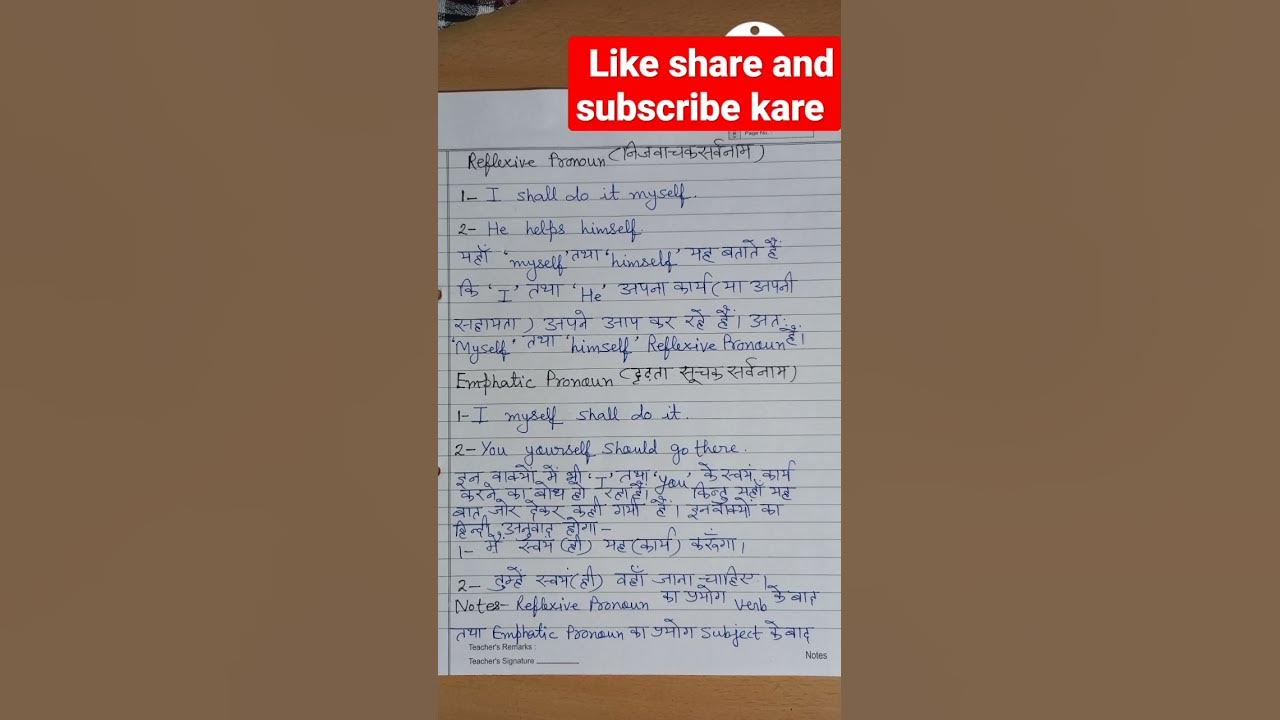 Like share and
subscribe kare
Page No.
Reflexive Pronoun (निजवाचक सर्वनाम)
1- I shall do it myself.
2- He helps himself.
यहाँ 'myself' तथा 'himself' यह बताते हैं
कि 'I' तथा 'He' अपना कार्य (या अपनी
सहायता) अपने आप कर रहे हैं। अत:
'Myself' तथा 'himself' Reflexive Pronoun हैं।
Emphatic Pronoun (दृढ़ता सूचक सर्वनाम)
1- I myself shall do it.
2- You yourself should go there.
इन वाक्यों में भी 'I' तथा 'you' के स्वयं कार्य
करने का बोध हो रहा है। किन्तु यहाँ यह
बात जोर देकर कही गयी है। इन वाक्यों का
हिन्दी अनुवाद होगा -
1- मैं स्वयं (ही) यह (कार्य) करूँगा।
2- तुम्हें स्वयं (ही) वहाँ जाना चाहिए।
Notes- Reflexive Pronoun का प्रयोग Verb के बाद
तथा Emphatic Pronoun का प्रयोग Subject के बाद
Teacher's Remarks :
Teacher's Signature
Notes